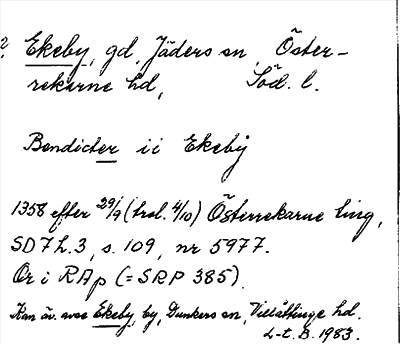 ?. Ekeby, gd, Jäders sn, Öster-
rekarne hd, Söd. l.
Bendicter ii Ekeby
1358 efter 29/9 (trol. 4/10) Österrekarne ting,
SD7h.3, s. 109, nr 5977.
Or i RAp (=SRP 385).
Kan äv. avse Ekeby, by, Dunkers sn, Villåttinge hd.
L-t. B. 1983.